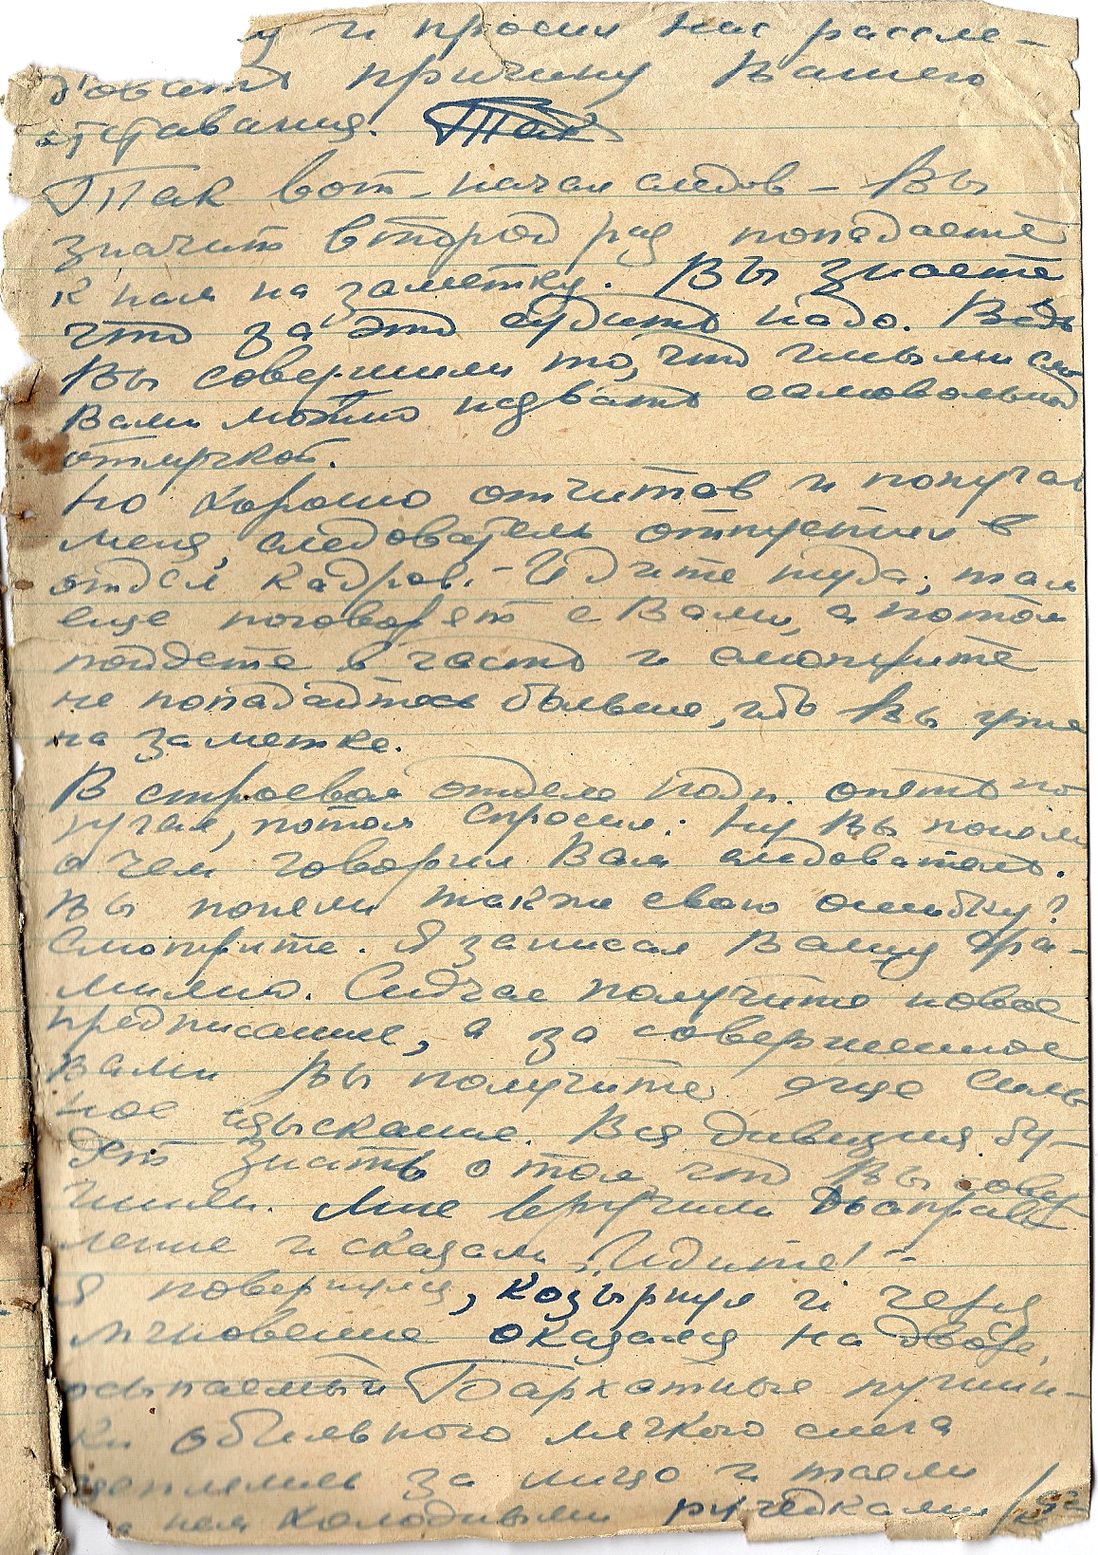 у и просил нас рассле-
довать причину Вашего
отставания. Так
Так вот, начал следов - Вы
значит второй раз попадаете
к нам на заметку. Вы знаете
что за это судить надо. Ведь
Вы совершили то, что иными сло
вами можно назвать самовольной
отлучкой.
Но хорошо отчитав и попугав
меня, следователь отпустил в
отдел кадров. - Идите туда, там
еще поговорят с Вами, а потом
пойдете в часть и смотрите
не попадайтесь больше, ибо Вы уже
на заметке.
В строевом отделе подп. опять по
пугал, потом спросил: Ну Вы поняли
о чем говорил Вам следователь.
Вы поняли также свою ошибку?
Смотрите. Я записал Вашу фа-
милию. Сейчас получите новое
предписание, а за совершенное
вами Вы получите еще силь
ное взыскание. Вся дивизия бу-
дет знать о том, что Вы совер
шили. Мне вручили
ление и сказали „Идите! -
Я повернулся, козырнул и через
мгновение оказался на дворе,
осыпаемый Бархатные пушин-
ки обильного мягкого снега
цеплялись за лицо и таяли
на нем холодными ручейками